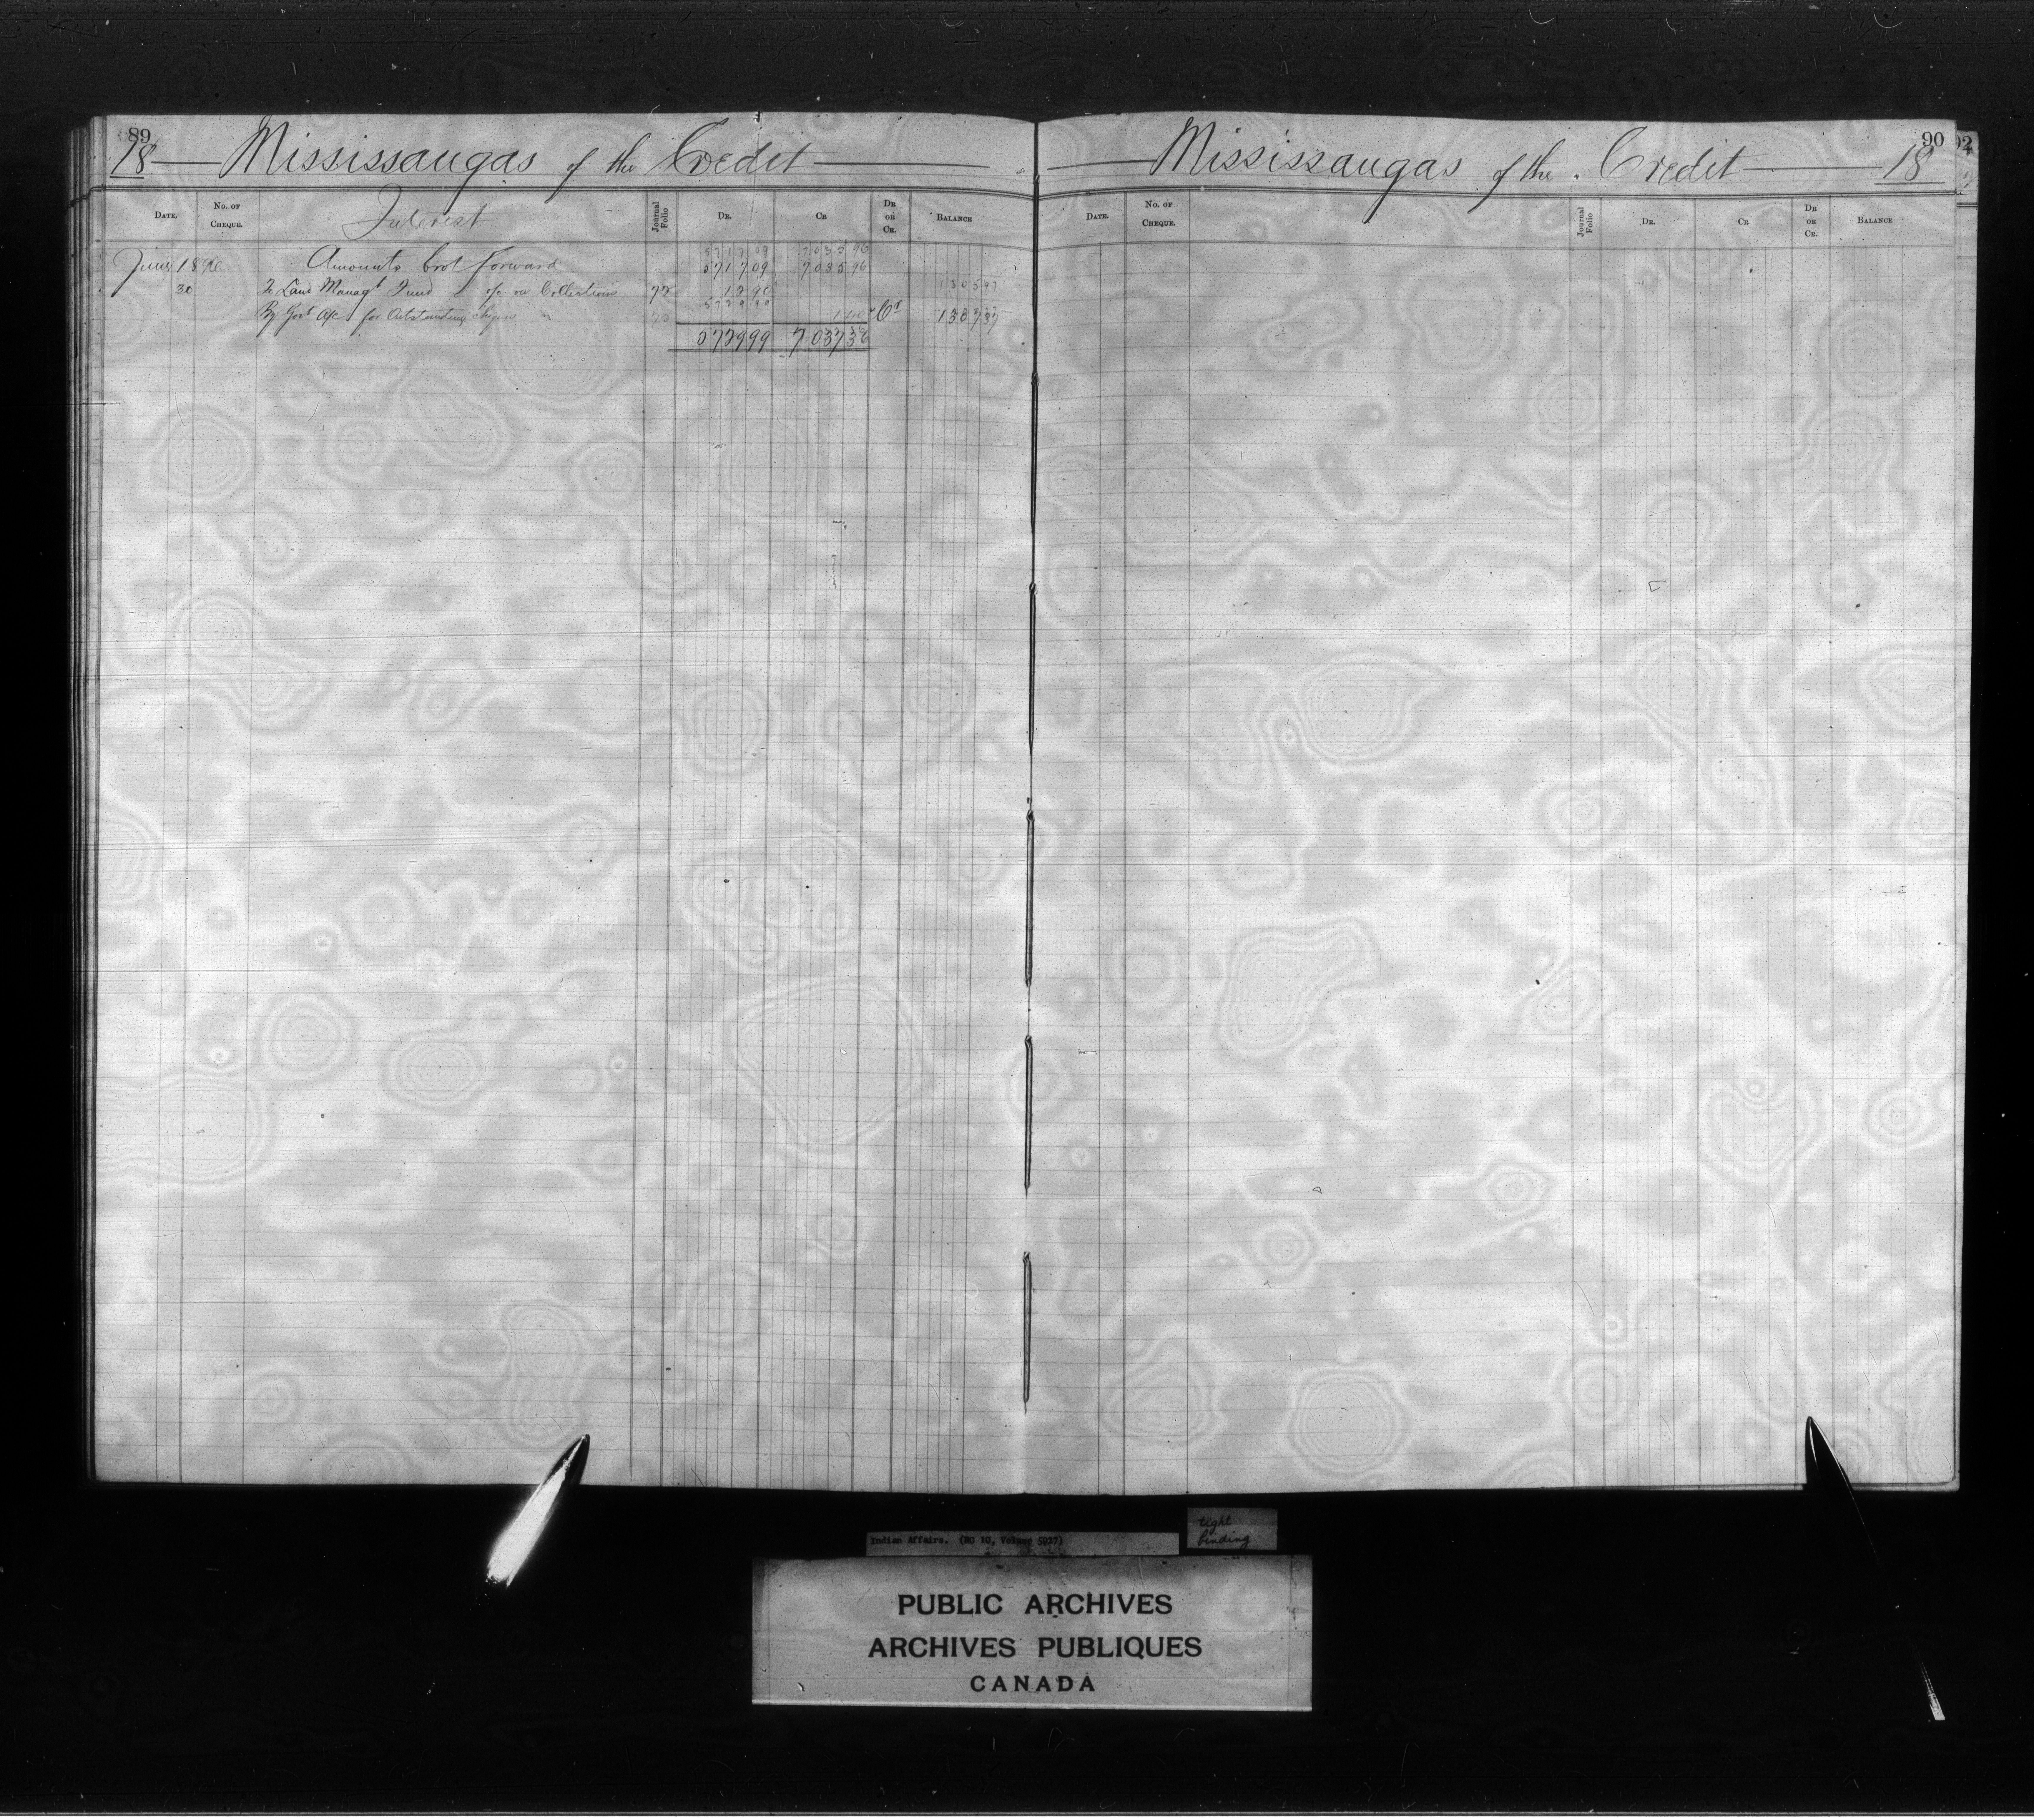 89
18 Mississaugas of the Credit
DATE. NO. OF CHEQUE. Interest Journal Folio DR. CR DR OR CR. BALANCE
5717 09 7035 96
June 18 Amounts brot forward 5717 09 7035 96
30 To Land Managt Fund % on Collections 72 12 90 1305 97
5729 99
By Govt A/c for Outstanding cheques 1 40 Cr 1307 37
5729 99 7037 36
90
Mississaugas of the Credit 18
DATE. NO. OF CHEQUE. Journal Folio DR. CR DR OR CR. BALANCE
92
Indian Affairs. (RG 10, Volume 5937)
tight
binding
PUBLIC ARCHIVES
ARCHIVES PUBLIQUES
CANADA